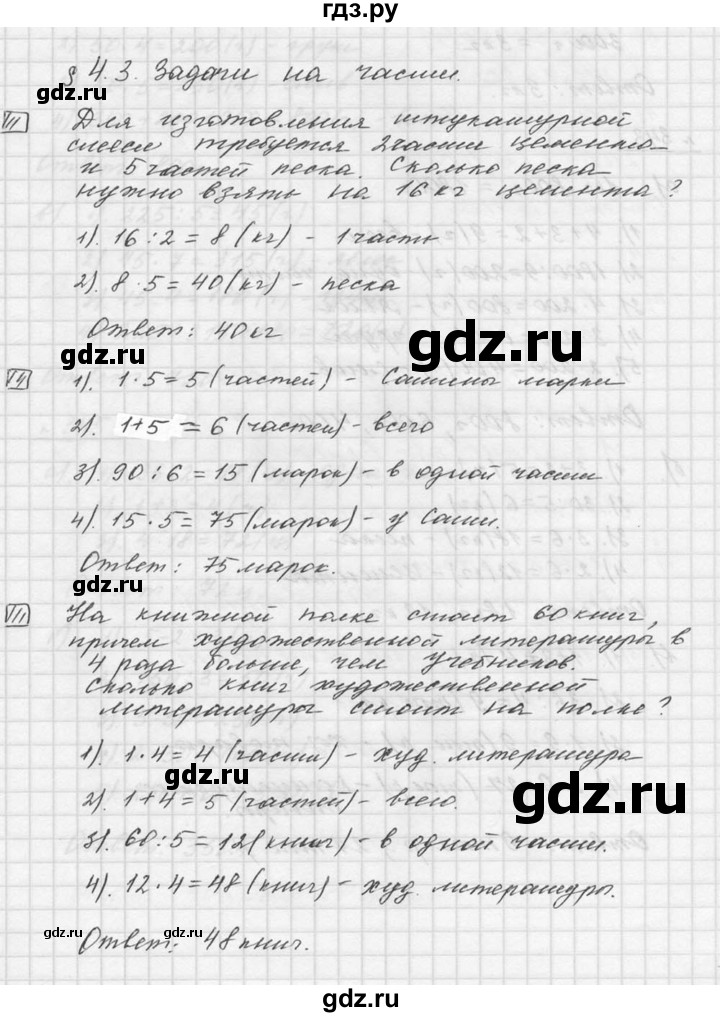 гдз.ру
§ 4.3. Задачи на части.
Для изготовления штукатурной
смеси требуется 2 части цемента
и 5 частей песка. Сколько песка
нужно взять на 16 кг цемента?
1). 16 : 2 = 8 (кг) - 1 часть
2). 8 · 5 = 40 (кг) - песка
Ответ: 40 кг
gdz.ru
1). 1 · 5 = 5 (частей) - Сашины марки
2). 1+5 = 6 (частей) - всего
3). 90 : 6 = 15 (марок) - в одной части
4). 15 · 5 = 75 (марок) - у Саши.
Ответ: 75 марок.
На книжной полке стоит 60 книг,
причем художественной литературы в
4 раза больше, чем учебников.
Сколько книг художественной
литературы стоит на полке?
1). 1 · 4 = 4 (части) - худ. литература
2). 1 + 4 = 5 (частей) - всего.
3). 60 : 5 = 12 (книг) - в одной части.
4). 12 · 4 = 48 (книг) - худ. литературы.
Ответ: 48 книг.
gdz.ru